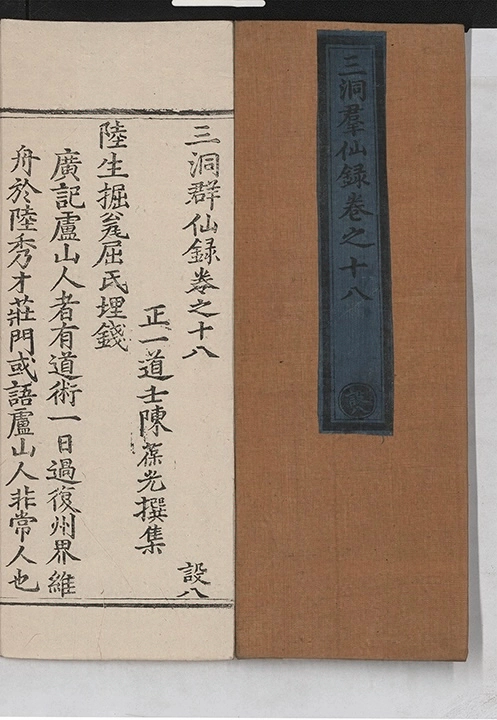 三洞羣仙録卷之十八
設八
三洞群仙録卷之十八
設八
正一道士陳葆光撰集
陸生掘瓮屈氏埋錢
廣記盧山人者有道術一日過復州界維
舟於陸秀才莊門或語盧山人非常人也